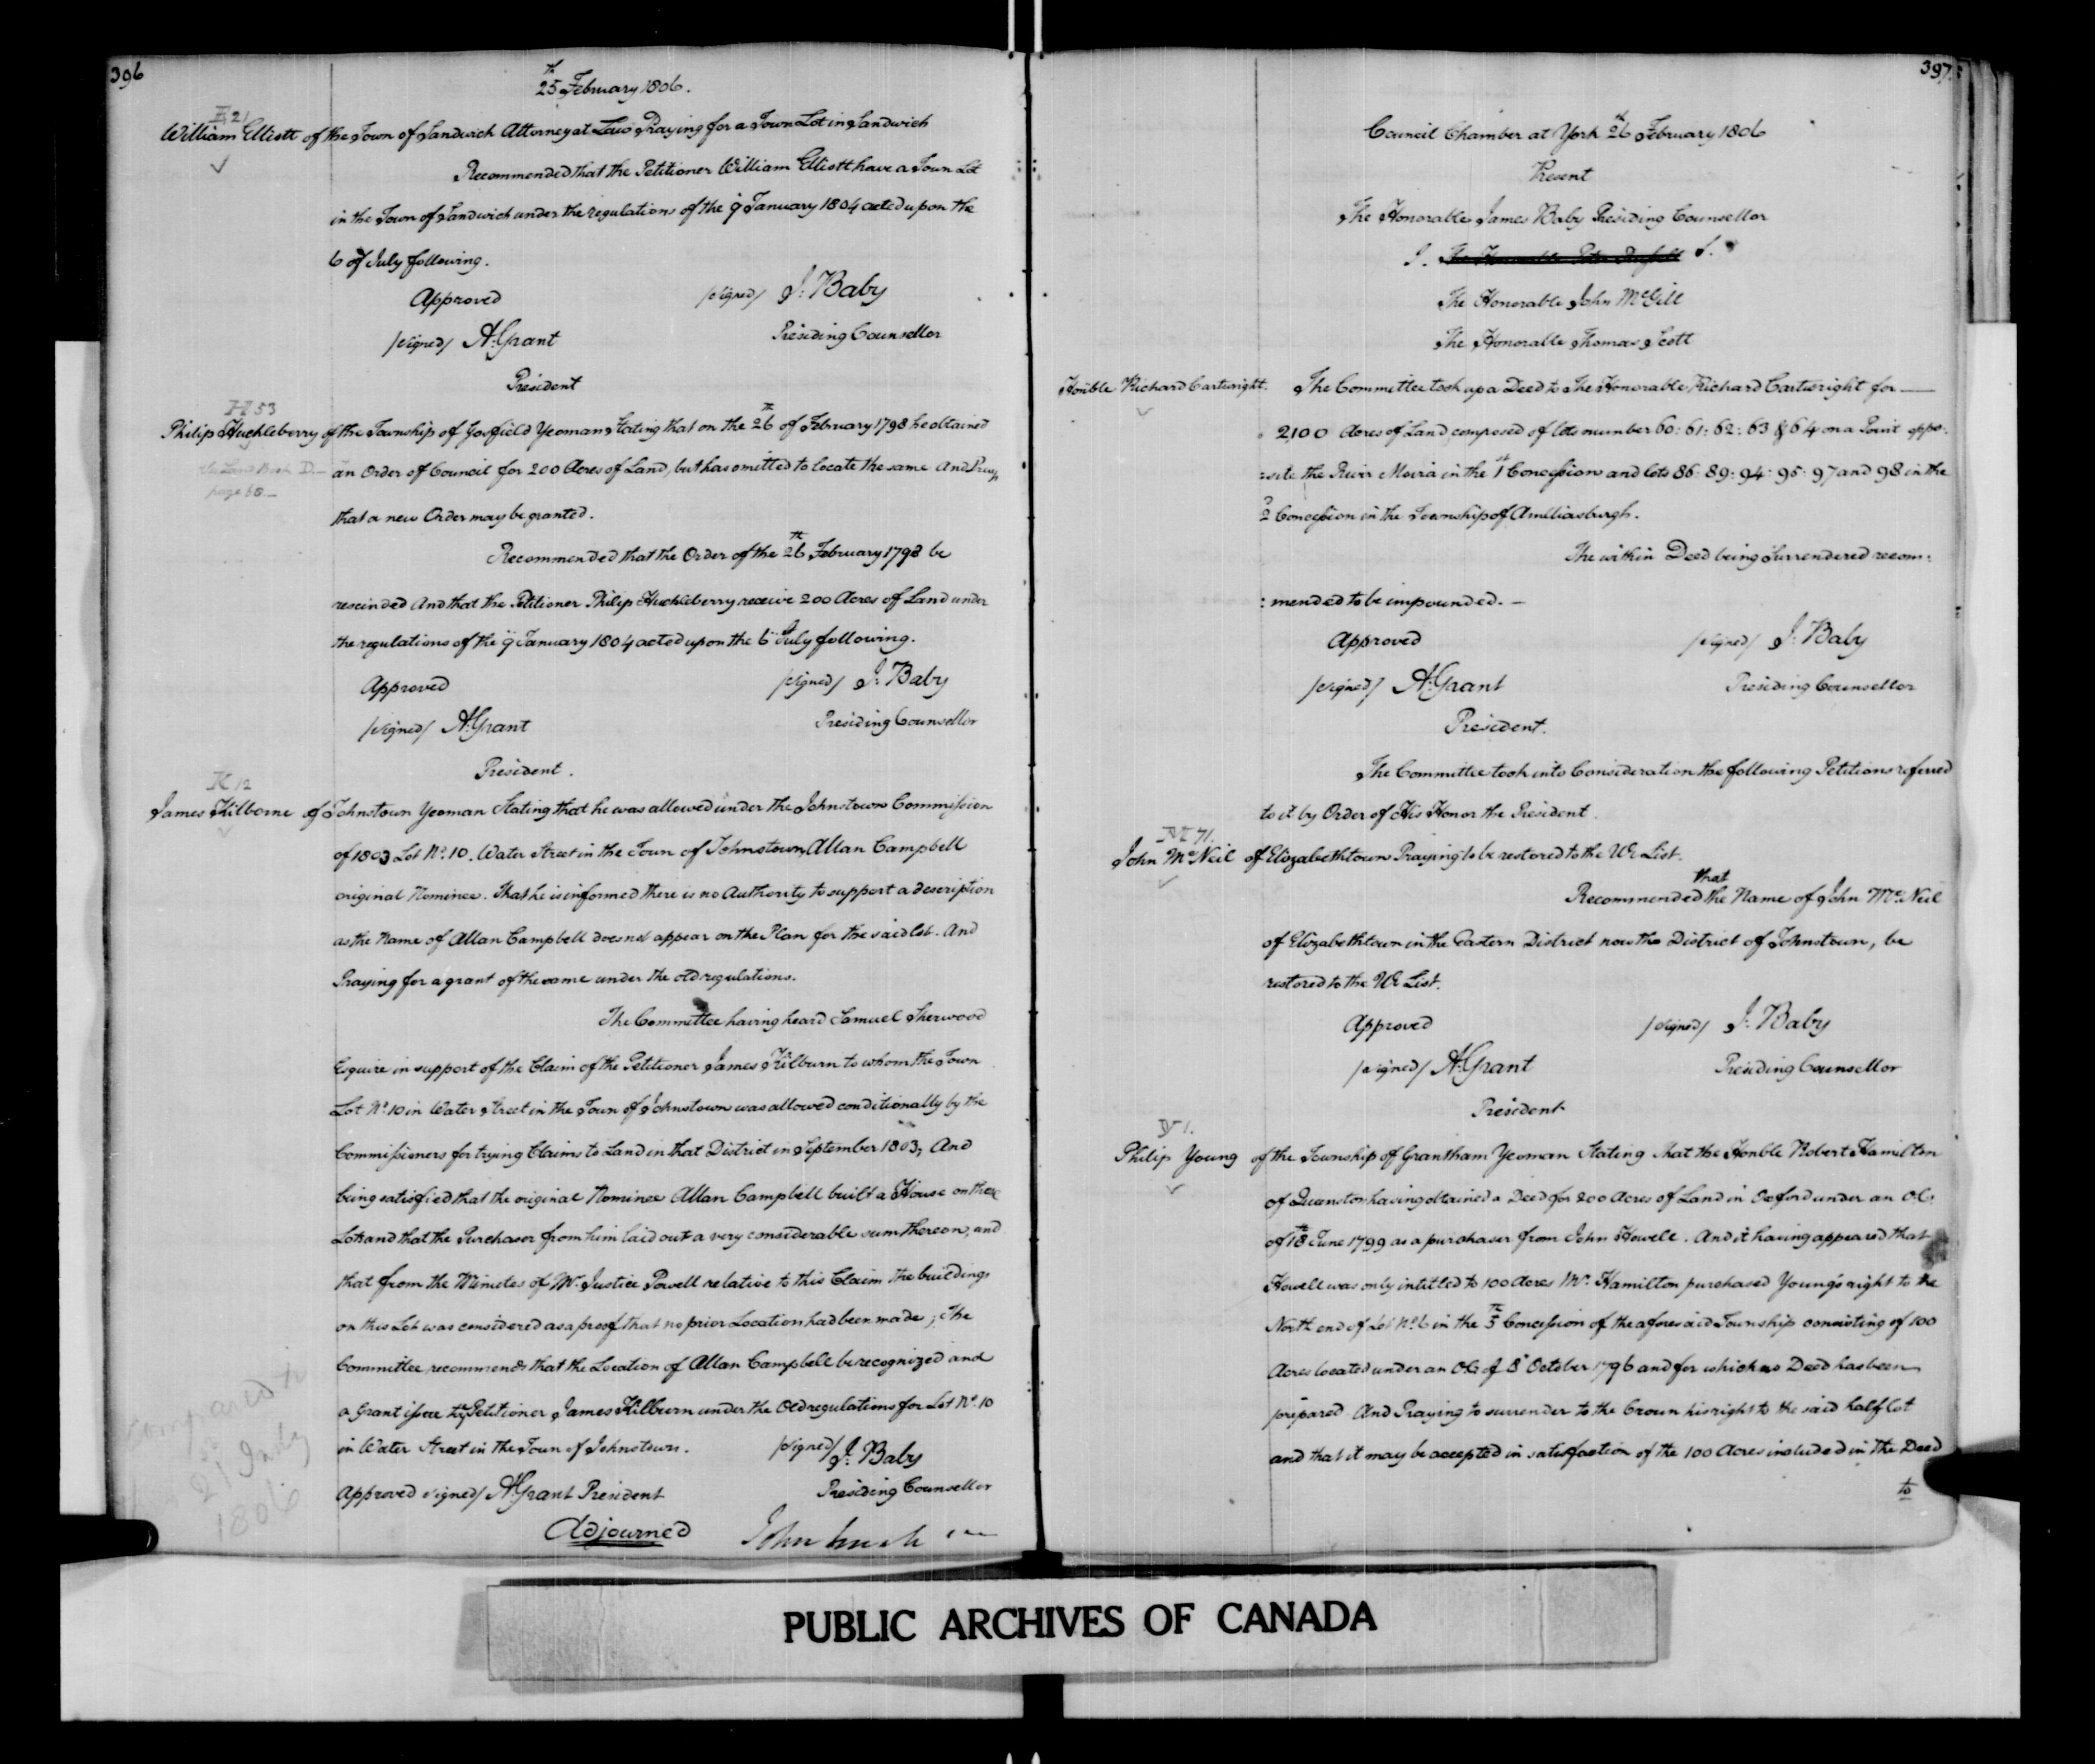 396
25th February 1806.
E 21
William Elliott of the Town of Sandwich Attorney at Law Praying for a Town Lot in Sandwich
Recommended that the Petitioner William Elliott have a Town Lot
in the Town of Sandwich under the regulations of the 9 January 1804 acted upon the
6 of July following.
Approved /signed/ J. Baby
/signed/ A. Grant Presiding Counsellor
President
H 53
Philip Huckleberry of the Township of Gosfield Yeoman Stating that on the 26th of February 1798 he obtained
Land Book D— an Order of Council for 200 Acres of Land, but has omitted to locate the same And Prays
page
that a new Order may be granted.
Recommended that the Order of the 26th February 1798 be
rescinded And that the Petitioner Philip Huckleberry receive 200 Acres of Land under
the regulations of the 9 January 1804 acted upon the 6 July following.
Approved /signed/ J. Baby
/signed/ A. Grant Presiding Counsellor
President.
K 12
James Kilborne of Johnstown Yeoman Stating that he was allowed under the Johnstown Commission
of 1803 Lot No. 10. Water Street in the Town of Johnstown, Allan Campbell
original Nominee. That he is informed there is no Authority to support a description
as the Name of Allan Campbell does not appear on the Plan for the said lot. And
Praying for a grant of the same under the old regulations.
The Committee having heard Samuel Sherwood
Esquire in support of the Claim of the Petitioner James Kilburn to whom the Town
Lot No. 10 in Water Street in the Town of Johnstown was allowed conditionally by the
Commissioners for trying Claims to Land in that District in September 1803, And
being satisfied that the original Nominee Allan Campbell built a House on these
Lots and that the Purchaser from him laid out a very considerable sum thereon, and
that from the Minutes of Mr. Justice Powell relative to this Claim the buildings
on this Lot was considered as a proof that no prior Location had been made; The
Committee recommends that the Location of Allan Campbell be recognized and
a Grant issue to Petitioner James Kilburn under the Old regulations for Lot No. 10
in Water Street in the Town of Johnstown. /signed/ J. Baby
Approved signed/ A. Grant President Presiding Counsellor
Adjourned John
Compared to
21 July
1806
397
Council Chamber at York 26th February 1806
Present
The Honorable James Baby Presiding Counsellor
The Honorable Peter Russell
The Honorable John McGill
The Honorable Thomas Scott
Honble Richard Cartwright. The Committee took up a Deed to The Honorable Richard Cartwright for —
2,100 Acres of Land composed of lots number 60: 61: 62: 63 & 64 on a Point oppo:
:site the River Moira in the 1st Concession and lots 86: 89: 94: 95: 97 and 98 in the
2 Concession in the Township of Ameliasburgh.
The within Deed being Surrendered recom:
: mended to be impounded. —
Approved /signed/ J. Baby
/signed/ A. Grant Presiding Counsellor
President.
The Committee took into Consideration the following Petitions referred
to it by Order of His Honor the President.
M 71.
John McNeil of Elizabethtown Praying to be restored to the UE List.
that
Recommended the Name of John McNeil
of Elizabethtown in the Eastern District now the District of Johnstown, be
restored to the UE List.
Approved /signed/ J. Baby
/signed/ A. Grant Presiding Counsellor
President
Y 1.
Philip Young of the Township of Grantham Yeoman Stating That the Honble Robert Hamilton
of Queenston having obtained a Deed for 200 Acres of Land in Oxford under an O.C.
of 18th June 1799 as a purchaser from John Howell. And it having appeared that
Howell was only intitled to 100 Acres Mr. Hamilton purchased Young's right to the
North end of Lot No. 6 in the 5th Concession of the aforesaid Township consisting of 100
Acres located under an OC of 8 October 1796 and for which no Deed has been
prepared And Praying to surrender to the Crown his right to the said half lot
and that it may be accepted in satisfaction of the 100 Acres included in the Deed
to
PUBLIC ARCHIVES OF CANADA